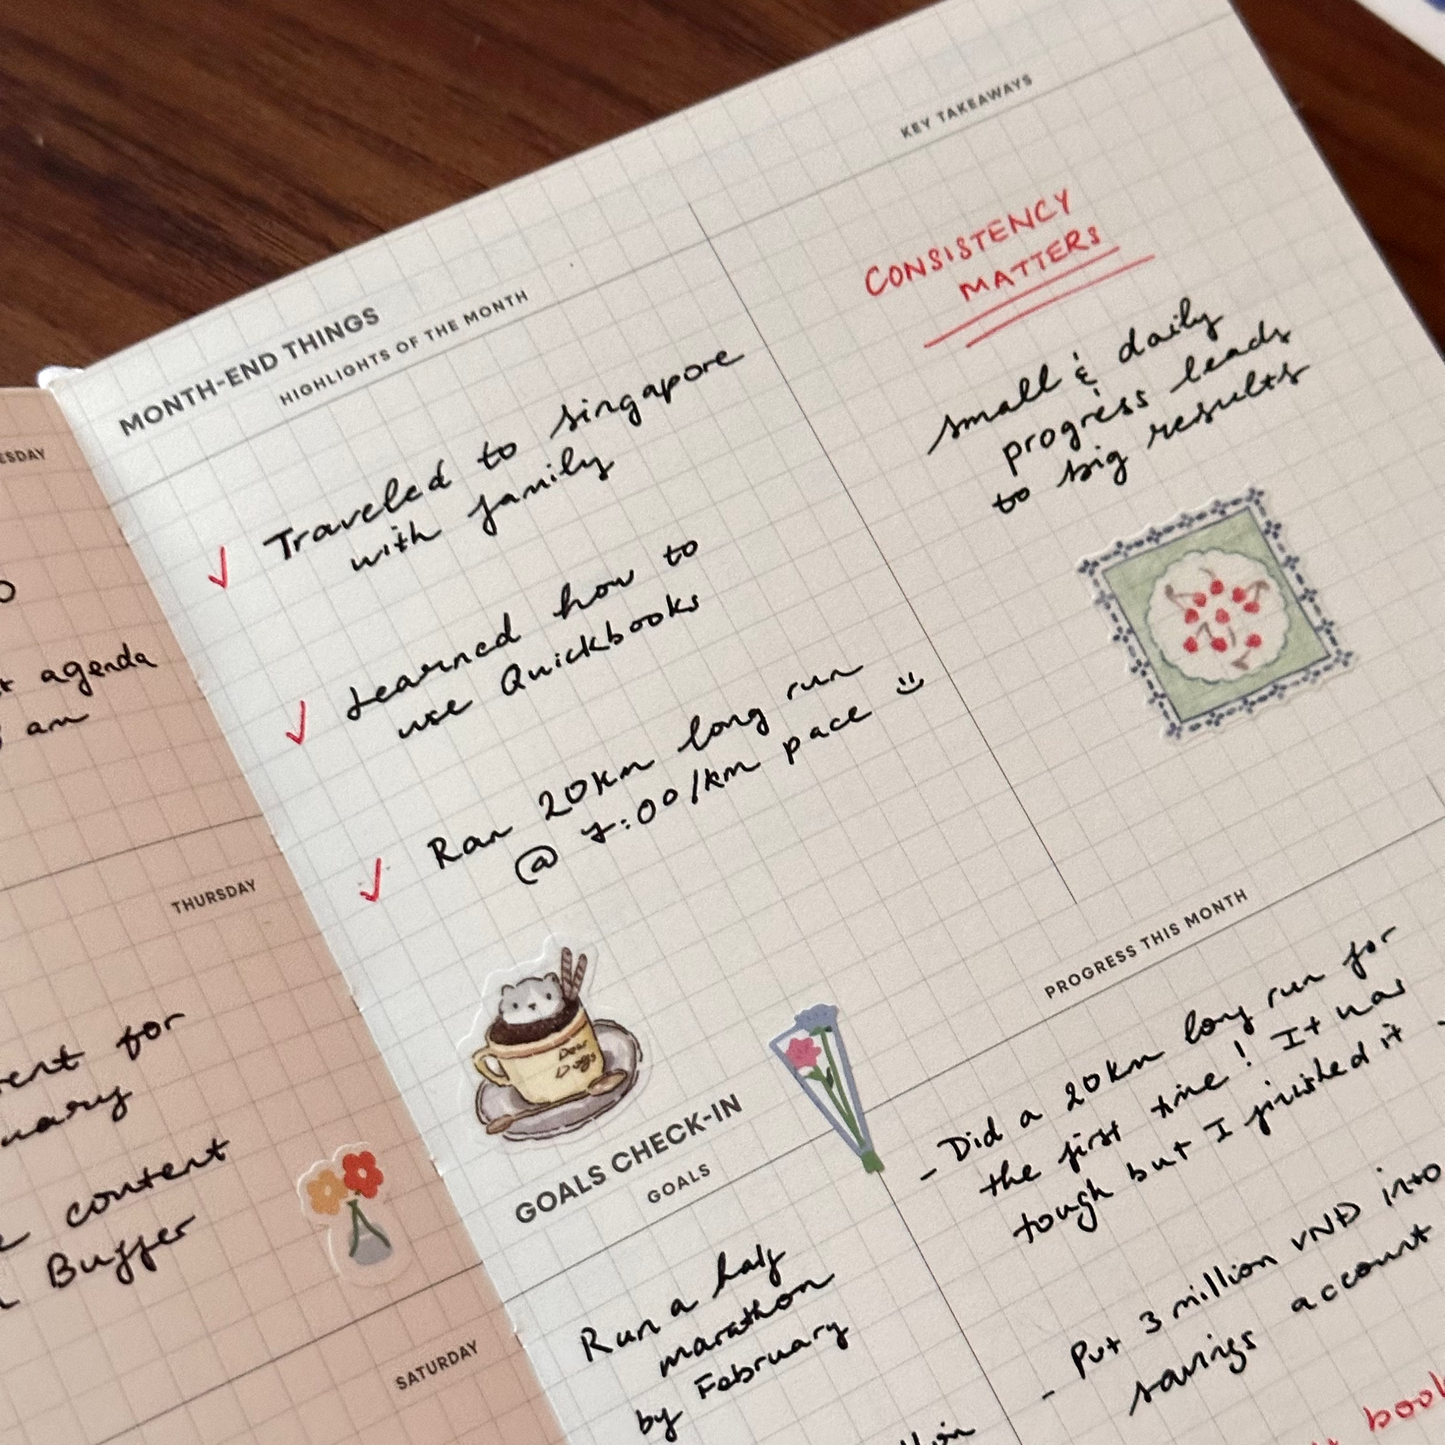 ESDAY
agenda
am
THURSDAY
for
content
Buffer
SATURDAY
MONTH-END THINGS
HIGHLIGHTS OF THE MONTH
Traveled to singapore
with family
Learned how to
use Quickbooks
Ran 20km long run
@ 7:00/km pace
Dear
KEY TAKEAWAYS
CONSISTENCY
MATTERS
small & daily
progress leads
to big results
GOALS CHECK-IN
GOALS
Run a half
marathon
by February
PROGRESS THIS MONTH
- Did a 20km long run for
the first time! It was
tough but I finished it
- Put 3 million VND into
savings account